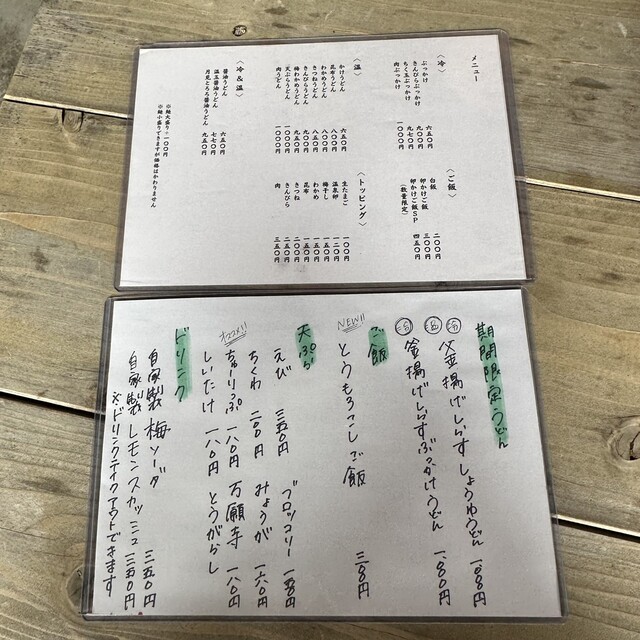 メニュー
〈冷〉
ぶっかけ 六五〇円
きんぴらぶっかけ 九〇〇円
ちく玉ぶっかけ 九七〇円
肉ぶっかけ 一〇〇〇円
〈ご飯〉
白飯 二〇〇円
卵かけご飯 三〇〇円
卵かけご飯SP 四五〇円
(数量限定)
〈温〉
かけうどん 六五〇円
昆布うどん 八〇〇円
わかめうどん 八〇〇円
きつねうどん 八五〇円
きんぴらうどん 九〇〇円
梅わかめうどん 九〇〇円
天ぷらうどん 一〇〇〇円
肉うどん 一〇〇〇円
〈トッピング〉
生たまご 一〇〇円
温泉卵 一二〇円
梅干し 一〇〇円
わかめ 一五〇円
昆布 一五〇円
きつね 二〇〇円
きんぴら 二五〇円
肉 三五〇円
〈冷&温〉
醤油うどん 六五〇円
温玉醤油うどん 七七〇円
月見とろろ醤油うどん 九五〇円
※麺大盛り+一〇〇円
※麺小盛りできますが価格はかわりません
期間限定うどん
冷 温 釜揚げしらすしょうゆうどん 一、〇〇〇円
冷 釜揚げしらすぶっかけうどん 一、〇〇〇円
ご飯
NEW!! とうもろこしご飯 三〇〇円
天ぷら
えび 三五〇円 ブロッコリー 一五〇円
ちくわ 二〇〇円 みょうが 一六〇円
オススメ!! ちゅーりっぷ 一八〇円 万願寺とうがらし 一八〇円
しいたけ 一八〇円
ドリンク
自家製梅ソーダ 三五〇円
自家製レモンスカッシュ 三五〇円
※ドリンクテイクアウトできます